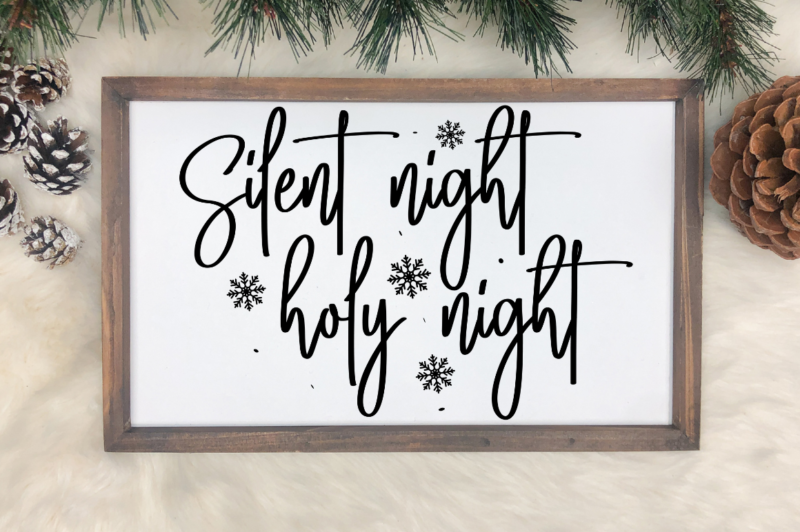 Silent night
holy night